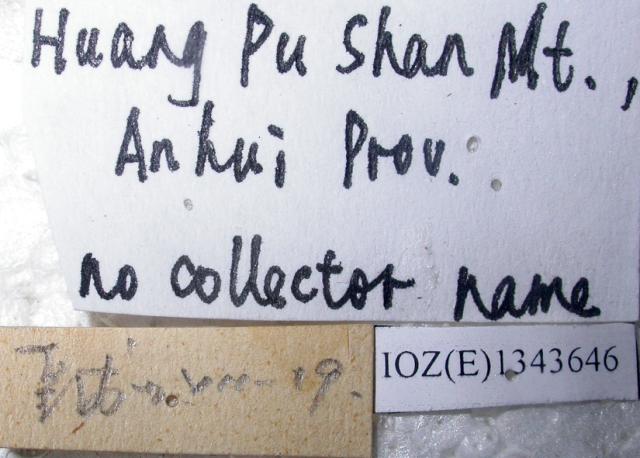 Huang Pu Shan Mt.,
Anhui Prov.
no collector name
IOZ(E)1343646
19.